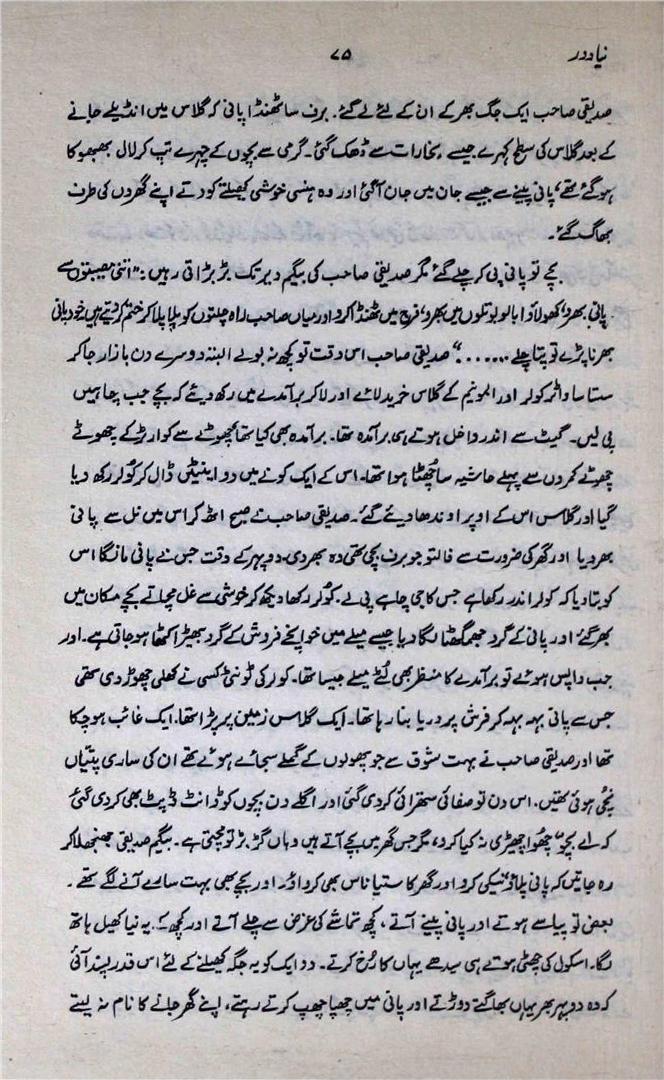 نیا دور ۷۵
صدیقی صاحب ایک جگ بھر کے ان کے لئے لے گئے۔ برف سا ٹھنڈا پانی کہ گلاس میں انڈیلے جانے
کے بعد گلاس کی سطح کہرے جیسے بخارات سے ڈھک گئی۔ گرمی سے بچوں کے چہرے تپ کر لال بھبھوکا
ہو گئے تھے، پانی پینے سے جیسے جان میں جان آگئی اور وہ ہنسی خوشی کھیلتے کودتے اپنے گھروں کی طرف
بھاگ گئے۔
بچے تو پانی پی کر چلے گئے مگر صدیقی صاحب کی بیگم دیر تک بڑبڑاتی رہیں: "اتنی مصیبتوں سے
پانی بھرو، کھولاؤ ابالو بوتلوں میں بھرو، فرج میں ٹھنڈا کرو اور میاں صاحب راہ چلتوں کو پلا پلا کر ختم کر دیتے ہیں خود پانی
بھرنا پڑے تو پتا چلے ......" صدیقی صاحب اس وقت تو کچھ نہ بولے البتہ دوسرے دن بازار جا کر
سستا سا واٹر کولر اور المونیم کے گلاس خرید لائے اور لا کر برآمدے میں رکھ دیئے کہ بچے جب چاہیں
پی لیں۔ گیٹ سے اندر داخل ہوتے ہی برآمدہ تھا۔ برآمدہ بھی کیا تھا چھوٹے سے کوارٹر کے چھوٹے
چھوٹے کمروں سے پہلے حاشیہ سا چھٹا ہوا تھا۔ اس کے ایک کونے میں دو اینٹیں ڈال کر کولر رکھ دیا
گیا اور گلاس اس کے اوپر اوندھا دیئے گئے۔ صدیقی صاحب نے صبح اٹھ کر اس میں نل سے پانی
بھر دیا اور گھر کی ضرورت سے فالتو جو برف بچی تھی وہ بھر دی۔ دوپہر کے وقت جس نے پانی مانگا اس
کو بتا دیا کہ کولر اندر رکھا ہے جس کا جی چاہے پی لے۔ کولر رکھا دیکھ کر خوشی سے غل مچاتے بچے مکان میں
بھر گئے اور پانی کے گرد جھمگھٹا لگا دیا جیسے میلے میں خوانچے فروش کے گرد بھیڑ اکٹھا ہو جاتی ہے۔ اور
جب واپس ہوئے تو برآمدے کا منظر بھی لٹے میلے جیسا تھا۔ کولر کی ٹونٹی کسی نے کھلی چھوڑ دی تھی
جس سے پانی بہہ بہہ کر فرش پر دریا بنا رہا تھا۔ ایک گلاس زمین پر پڑا تھا۔ ایک غائب ہو چکا
تھا اور صدیقی صاحب نے بہت شوق سے جو پھولوں کے گملے سجائے ہوئے تھے ان کی ساری پتیاں
نچی ہوئی تھیں۔ اس دن تو صفائی ستھرائی کر دی گئی اور اگلے دن بچوں کو ڈانٹ ڈپٹ بھی کر دی گئی
کہ اے بچو "چھوا چھیڑی نہ کیا کرو، مگر جس گھر میں بچے آتے ہیں وہاں گڑبڑ تو مچتی ہے۔ بیگم صدیقی جھنجھلا کر
رہ جاتیں کہ پانی پلاؤ نیکی کرو اور گھر کا ستیاناس بھی کرواؤ۔ اور بچے بھی بہت سارے آنے لگے تھے۔
بعض تو پیاسے ہوتے اور پانی پینے آتے، کچھ تماشے کی غرض سے چلے آتے اور کچھ کے یہ نیا کھیل ہاتھ
لگا۔ اسکول کی چھٹی ہوتے ہی سیدھے یہاں کا رخ کرتے۔ دو ایک کو یہ جگہ کھیلنے کے لئے اس قدر پسند آئی
کہ وہ دوپہر بھر یہاں بھاگتے دوڑتے اور پانی میں چھپا چھپ کرتے رہتے، اپنے گھر جانے کا نام نہ لیتے